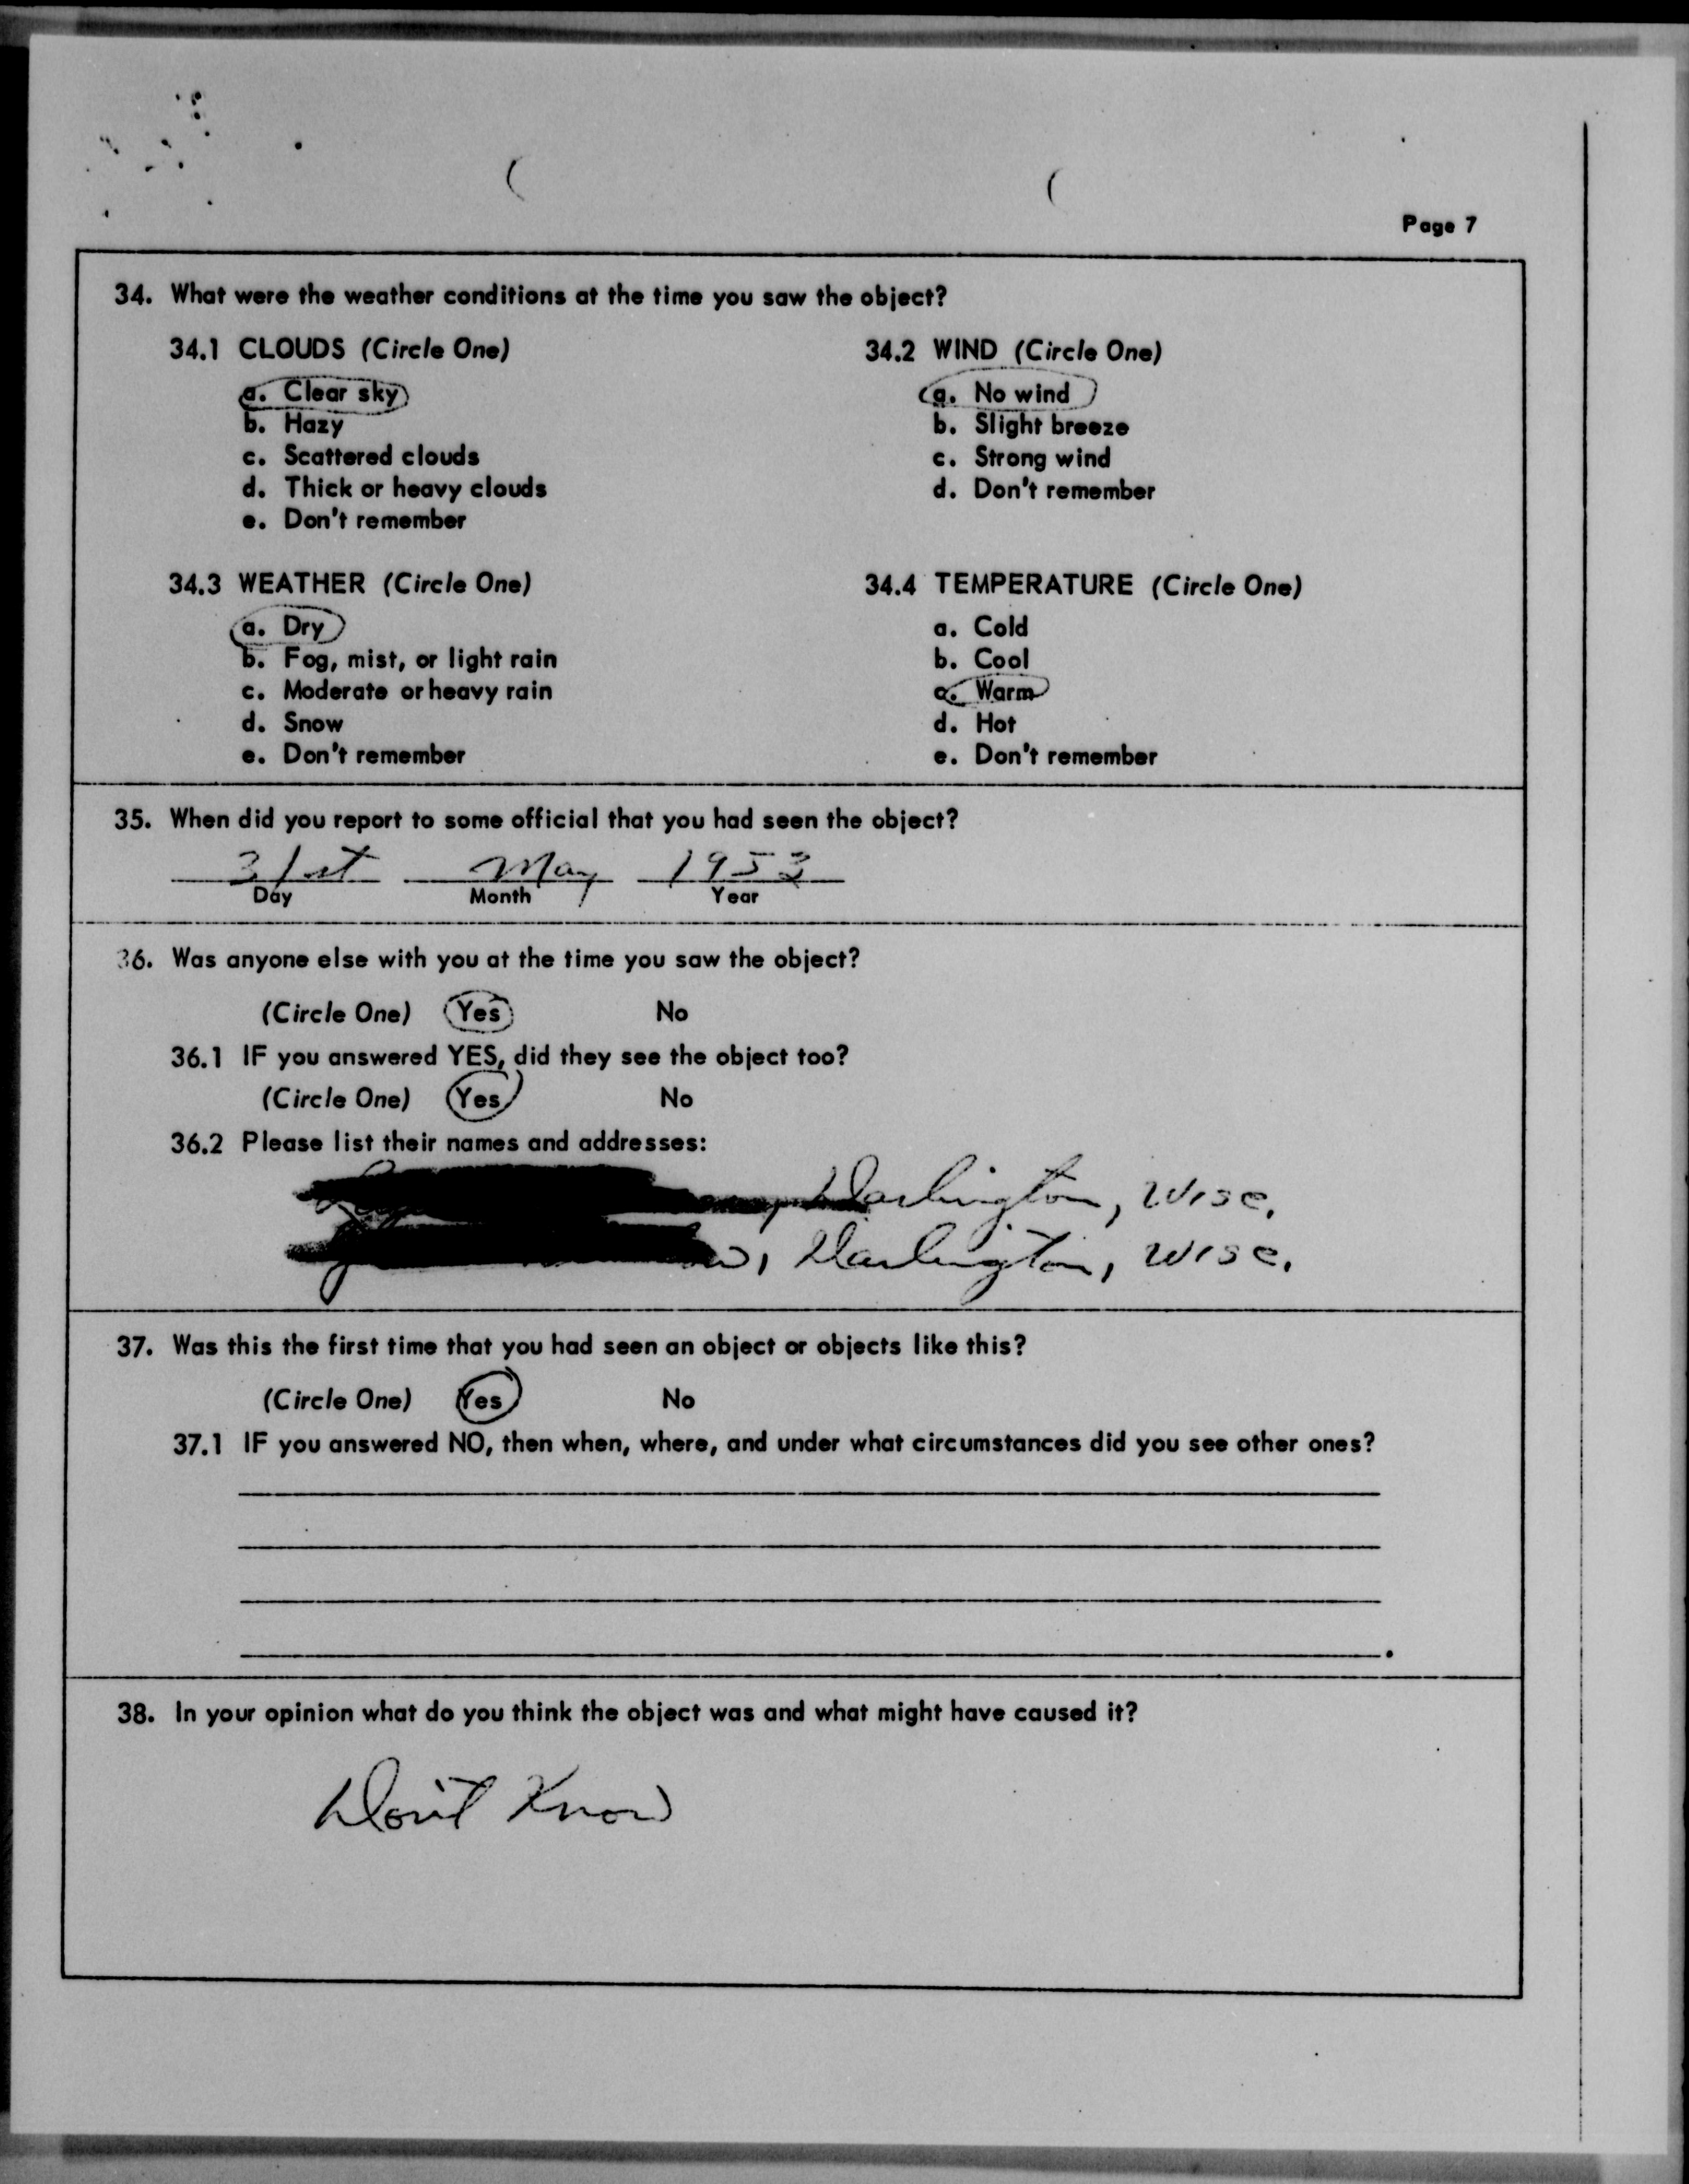 Page 7
34. What were the weather conditions at the time you saw the object?
34.1 CLOUDS (Circle One)
a. Clear sky
b. Hazy
c. Scattered clouds
d. Thick or heavy clouds
e. Don't remember
34.2 WIND (Circle One)
a. No wind
b. Slight breeze
c. Strong wind
d. Don't remember
34.3 WEATHER (Circle One)
a. Dry
b. Fog, mist, or light rain
c. Moderate or heavy rain
d. Snow
e. Don't remember
34.4 TEMPERATURE (Circle One)
a. Cold
b. Cool
c. Warm
d. Hot
e. Don't remember
35. When did you report to some official that you had seen the object?
31st May 1953
Day Month Year
36. Was anyone else with you at the time you saw the object?
(Circle One) Yes No
36.1 IF you answered YES, did they see the object too?
(Circle One) Yes No
36.2 Please list their names and addresses:
Darlington, Wisc.
Darlington, Wisc.
37. Was this the first time that you had seen an object or objects like this?
(Circle One) Yes No
37.1 IF you answered NO, then when, where, and under what circumstances did you see other ones?
38. In your opinion what do you think the object was and what might have caused it?
Don't Know